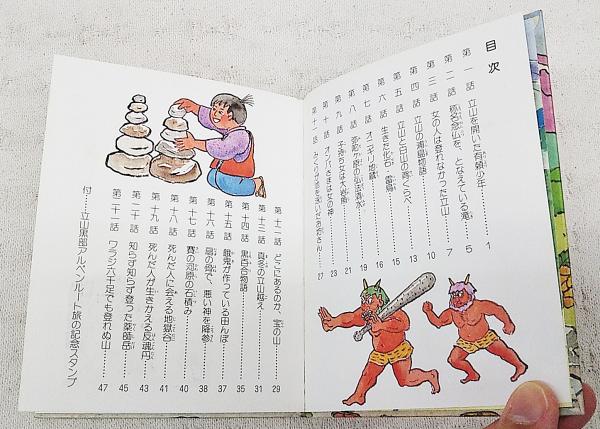 目次
第一話 立山を開いた有頼少年……1
第二話 称名念仏を、となえている滝……5
第三話 女の人は登れなかった立山……7
第四話 立山の浦島物語……10
第五話 立山と白山の背くらべ……13
第六話 生きた化石・雷鳥……15
第七話 オニギリ地蔵……16
第八話 弥陀ヶ原の弘法清水……19
第九話 子持ち女は大岩角……21
第十話 オンバさまは女の神……23
第十一話 みくりが池を泳いだお坊さん……27
第十二話 どこにあるのか、宝の山……29
第十三話 真冬の立山越え……31
第十四話 黒百合物語……35
第十五話 餓鬼が作っている田んぼ……37
第十六話 扇の骨で、悪い神を降参……38
第十七話 賽の河原の石積み……40
第十八話 死んだ人に会える地獄谷……41
第十九話 死んだ人が生きかえる反魂丹……43
第二十話 知らず知らず登った薬師岳……45
第二十一話 ワラジ六千足でも登れぬ山……47
付―立山黒部アルペンルート旅の記念スタンプ